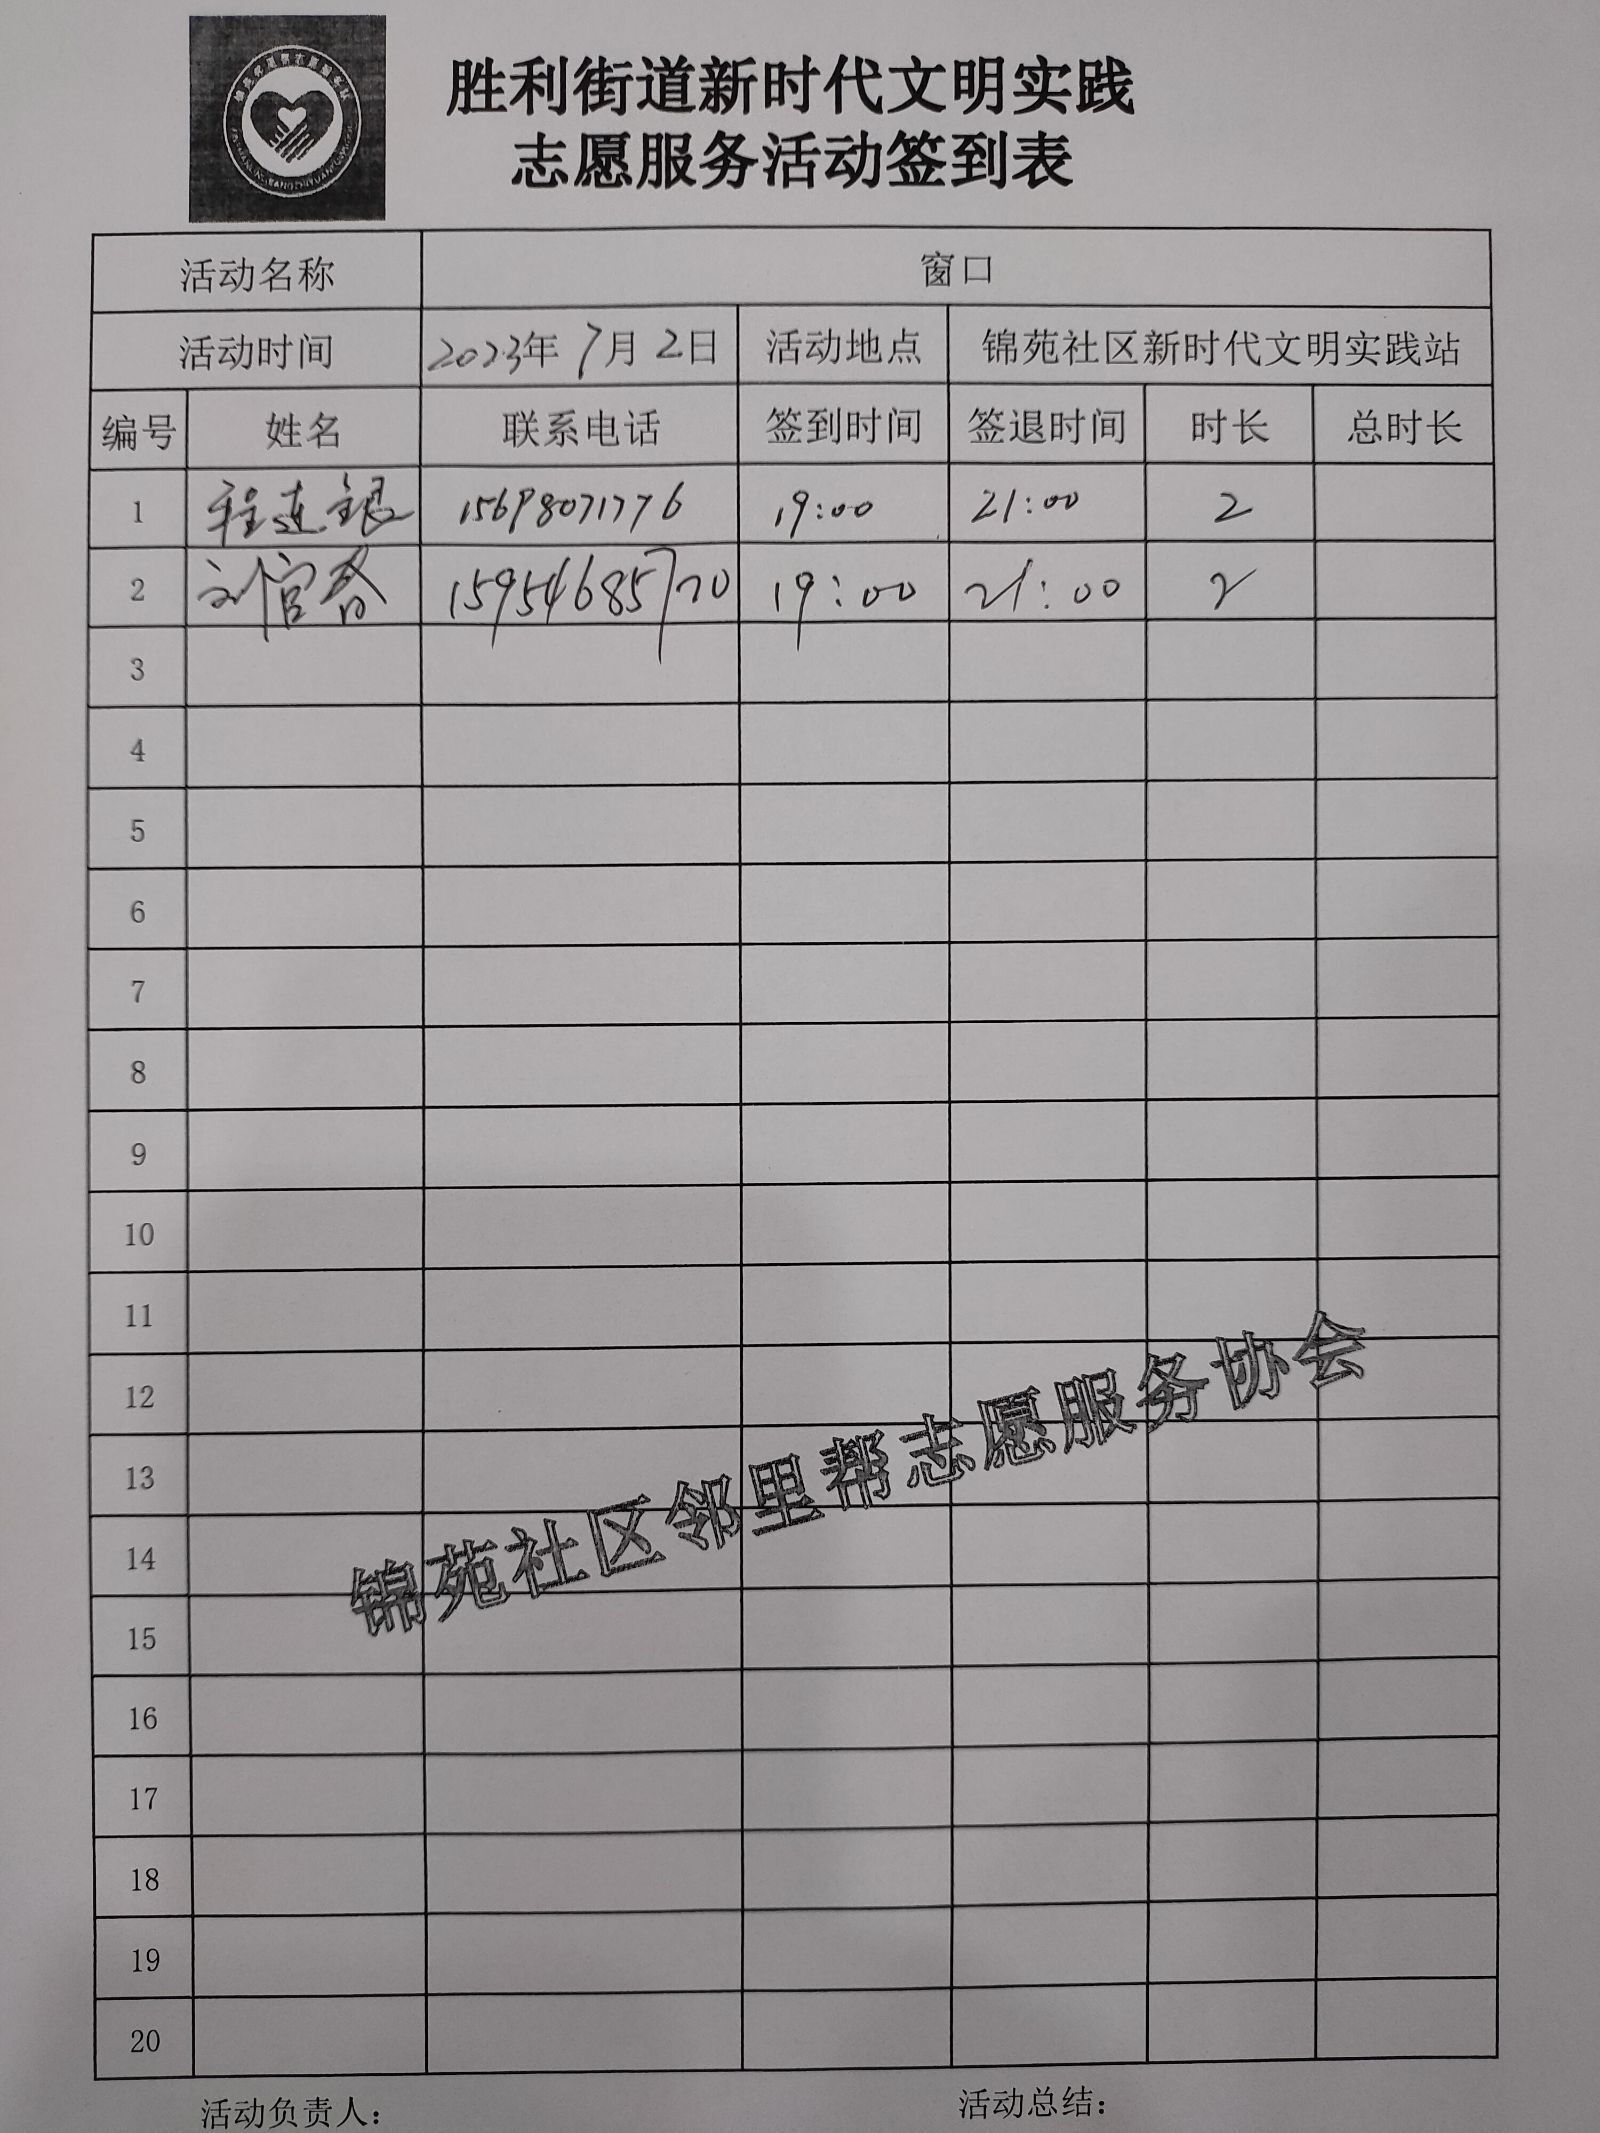 胜利街道新时代文明实践
志愿服务活动签到表
活动名称 窗口
活动时间 2023年 7月 2日 活动地点 锦苑社区新时代文明实践站
编号 姓名 联系电话 签到时间 签退时间 时长 总时长
1 程连银 15698071776 19:00 21:00 2
2 刘官 15954685770 19:00 21:00 2
3
4
5
6
7
8
9
10
11
12
13
14
15
16
17
18
19
20
锦苑社区邻里帮志愿服务协会
活动负责人: 活动总结: